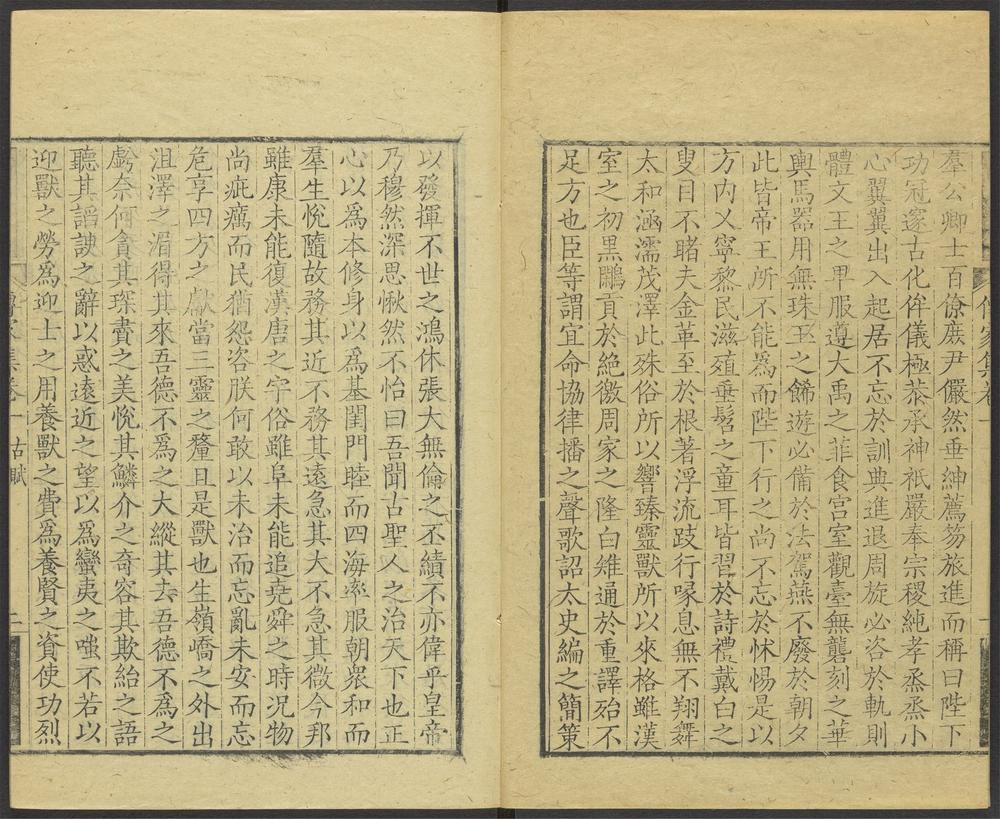 羣公卿士百僚庶尹儼然垂紳薦笏旅進而稱曰陛下
功冠邃古化侔儀極恭承神祇嚴奉宗稷純孝烝烝小
心翼翼出入起居不忘於訓典進退周旋必咨於軌則
體文王之卑服遵大禹之菲食宫室觀臺無礱刻之華
輿馬器用無珠玉之餙遊必備於法駕燕不廢於朝夕
此皆帝王所不能爲而陛下行之尚不忘於怵惕是以
方内乂寧黎民滋殖垂髫之童耳皆習於詩禮戴白之
叟目不睹夫金革至於根著浮流跂行喙息無不翔舞
太和涵濡茂澤此殊俗所以響臻靈獸所以來格雖漢
室之初黒鷴貢於絶徼周家之隆白雉通於重譯殆不
足方也臣等謂宜命協律播之聲歌詔太史編之簡策
傳家集卷一
以發揮不世之鴻休張大無倫之丕績不亦偉乎皇帝
乃穆然深思愀然不怡曰吾聞古聖人之治天下也正
心以爲本修身以爲基閨門睦而四海率服朝衆和而
羣生悅隨故務其近不務其遠急其大不急其微今邦
雖康未能復漢唐之宇俗雖阜未能追堯舜之時况物
尚疵癘而民猶怨咨朕何敢以未治而忘亂未安而忘
危享四方之獻當三靈之釐且是獸也生嶺嶠之外出
沮澤之湄得其來吾德不爲之大縱其去吾德不爲之
虧奈何貪其琛賮之美悅其鱗介之奇容其欺紿之語
聽其謟諛之辭以惑遠近之望以爲蠻夷之嗤不若以
迎獸之勞爲迎士之用養獸之費爲養賢之資使功烈
傳家集卷一 古賦 二